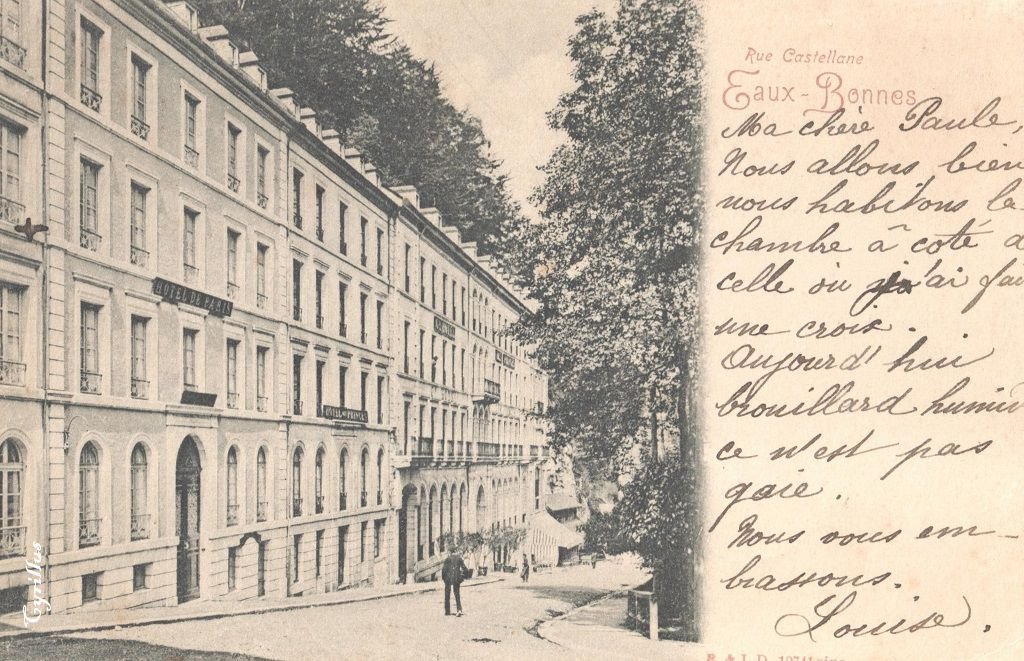 Rue Castellane
Eaux-Bonnes
Ma chère Paule,
Nous allons bien
nous habitons la
chambre à coté d
celle ou j'ai fai
une croix.
Aujourd'hui
brouillard humid
ce n'est pas
gaie.
Nous vous em-
brassons.
Louise.
HOTEL DE PARIS
HOTEL DES PRINCES
Cyrillus